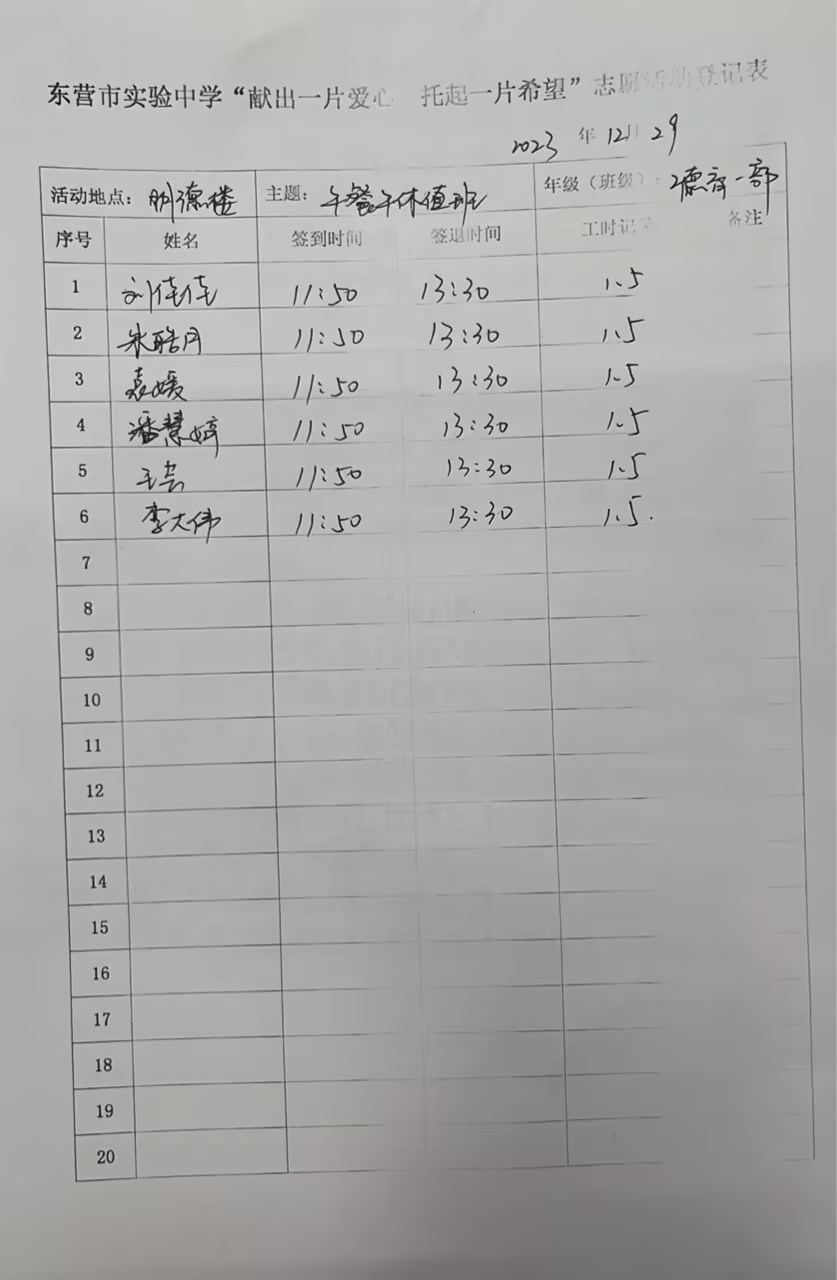 东营市实验中学“献出一片爱心 托起一片希望”志愿活动登记表
2023 年 12月 29
活动地点：明德楼 主题：午餐午休值班 年级（班级）：德育一部
序号 姓名 签到时间 签退时间 工时记录 备注
1 刘佳佳 11:50 13:30 1.5
2 朱皓月 11:50 13:30 1.5
3 袁媛 11:50 13:30 1.5
4 潘慧婷 11:50 13:30 1.5
5 王芸 11:50 13:30 1.5
6 李大伟 11:50 13:30 1.5.
7
8
9
10
11
12
13
14
15
16
17
18
19
20